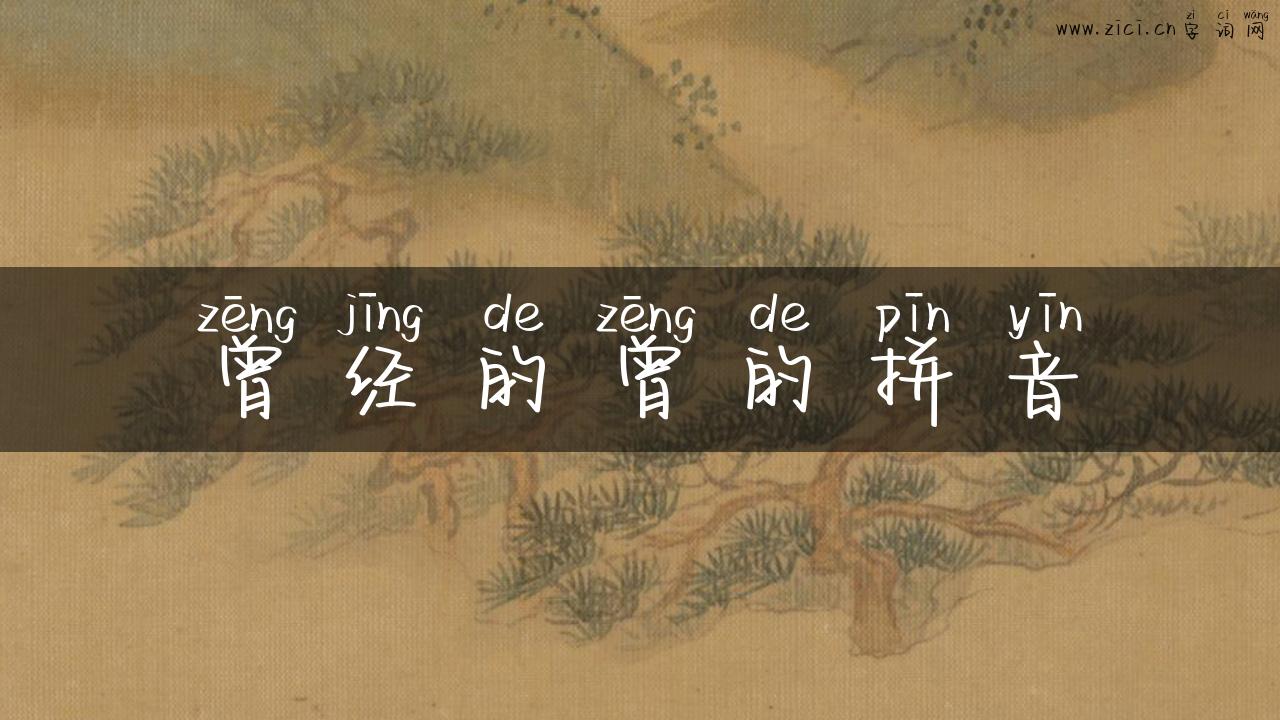 zì cí wǎng
www.zici.cn 字 词 网
zēng jīng de zēng de pīn yīn
曾 经 的 曾 的 拼 音